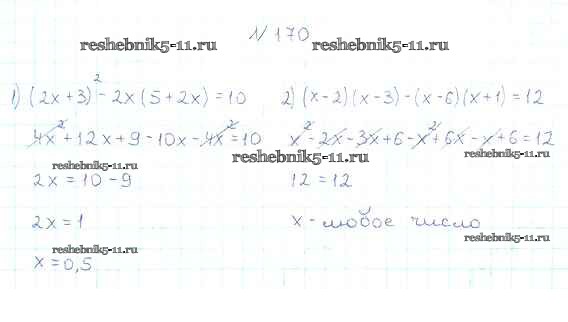 № 170
reshebnik5-11.ru reshebnik5-11.ru
1) (2x+3)² - 2x(5+2x) = 10
4x² + 12x + 9 - 10x - 4x² = 10
reshebnik5-11.ru
2x = 10 - 9
2x = 1
reshebnik5-11.ru
x = 0,5
2) (x-2)(x-3) - (x-6)(x+1) = 12
x² - 2x - 3x + 6 - x² + 6x - x + 6 = 12
reshebnik5-11.ru reshebnik5-11.ru
12 = 12
x - любое число
reshebnik5-11.ru